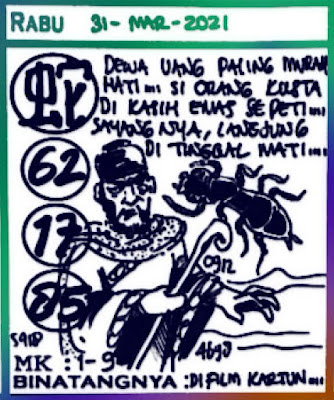 RABU 31-MAR-2021
DEWA UANG PALING MURAH
HATI... SI ORANG KUSTA
DI KASIH EMAS SEPETI...
SAYANGNYA, LANGSUNG
DI TINGGAL MATI...
62
17
85
0912
MK : 1-9
BINATANGNYA : DI FILM KARTUN...